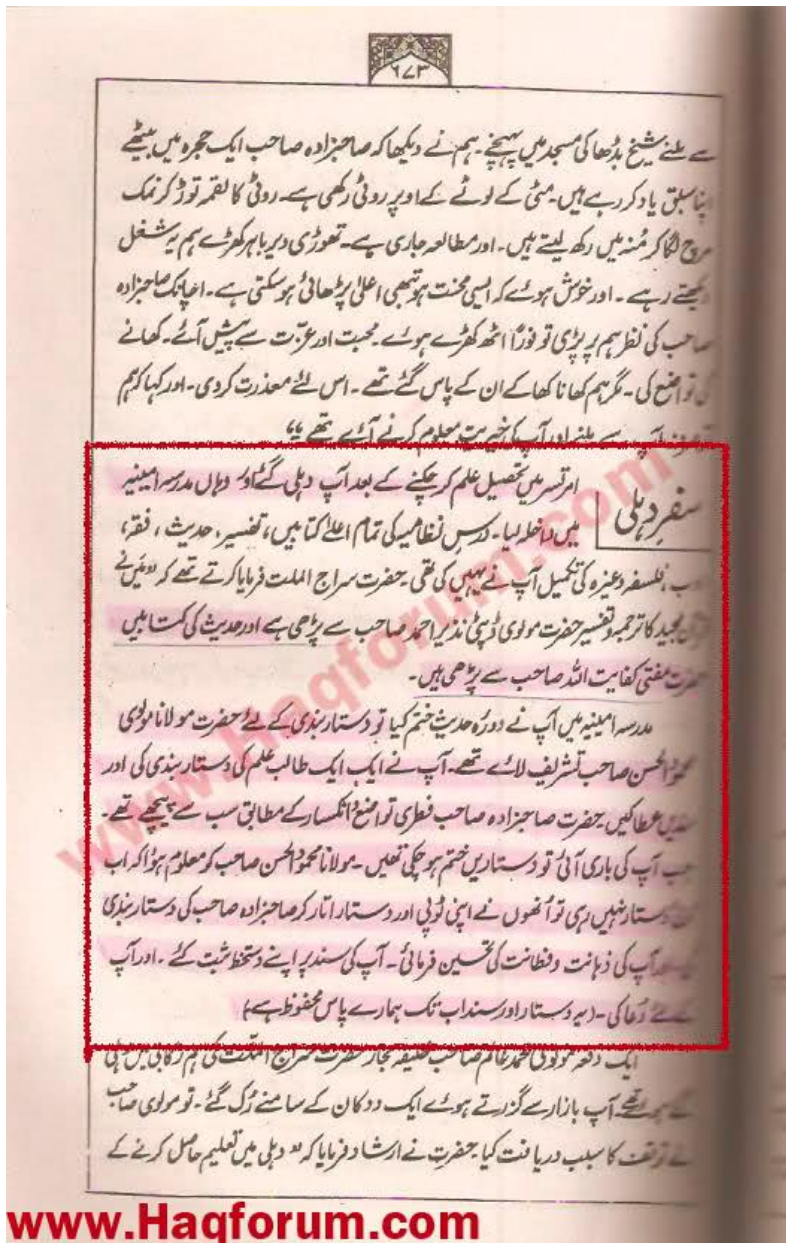 ۶۷۳
سے ملنے شیخ بڈھا کی مسجد میں پہنچے۔ ہم نے دیکھا کہ صاحبزادہ صاحب ایک حجرہ میں بیٹھے
اپنا سبق یاد کر رہے ہیں۔ مٹی کے لوٹے کے اوپر روٹی رکھی ہے۔ روٹی کا لقمہ توڑ کر نمک
مرچ لگا کر مُنہ میں رکھ لیتے ہیں۔ اور مطالعہ جاری ہے۔ تھوڑی دیر باہر کھڑے ہم یہ شغل
دیکھتے رہے۔ اور خوش ہوئے کہ ایسی محنت ہو تبھی اعلیٰ پڑھائی ہو سکتی ہے۔ اچانک صاحبزادہ
صاحب کی نظر ہم پر پڑی تو فوراً اٹھ کھڑے ہوئے۔ محبت اور عزّت سے پیش آئے۔ کھانے
کی تواضع کی۔ مگر ہم کھانا کھا کے ان کے پاس گئے تھے۔ اس لئے معذرت کر دی۔ اور کہا کہ ہم
آپ سے ملنے اور آپ کی خیریت معلوم کرنے آئے تھے"
سفرِ دہلی
امرتسر میں تحصیل علم کر چکنے کے بعد آپ دہلی گئے اور وہاں مدرسہ امینیہ
میں داخلہ لیا۔ درسِ نظامیہ کی تمام اعلےٰ کتابیں، تفسیر، حدیث، فقہ،
ادب، فلسفہ وغیرہ کی تکمیل آپ نے یہیں کی تھی۔ حضرت سراج الملت فرمایا کرتے تھے کہ "میں نے
قرآن مجید کا ترجمہ و تفسیر حضرت مولوی ڈپٹی نذیر احمد صاحب سے پڑھی ہے اور حدیث کی کتابیں
حضرت مفتی کفایت اللہ صاحب سے پڑھی ہیں۔
مدرسہ امینیہ میں آپ نے دورۂ حدیث ختم کیا تو دستار بندی کے لئے حضرت مولانا مولوی
محمود الحسن صاحب تشریف لائے تھے۔ آپ نے ایک ایک طالب علم کی دستار بندی کی اور
سندیں عطا کیں۔ حضرت صاحبزادہ صاحب فطری تواضع و انکسار کے مطابق سب سے پیچھے تھے۔
جب آپ کی باری آئی تو دستاریں ختم ہو چکی تھیں۔ مولانا محمود الحسن صاحب کو معلوم ہوا کہ اب
کوئی دستار نہیں رہی تو اُنھوں نے اپنی ٹوپی اور دستار اتار کر صاحبزادہ صاحب کی دستار بندی
کی اور آپ کی ذہانت و فطانت کی تحسین فرمائی۔ آپ کی سند پر اپنے دستخط ثبت کئے۔ اور آپ
کے لئے دُعا کی۔ (یہ دستار اور سند اب تک ہمارے پاس محفوظ ہے)
ایک دفعہ مولوی محمد عالم صاحب خلیفہ مجاز حضرت سراج الملّت کی ہم رکابی میں دہلی
گئے ہوئے تھے۔ آپ بازار سے گزرتے ہوئے ایک دوکان کے سامنے رُک گئے۔ تو مولوی صاحب
نے توقف کا سبب دریافت کیا۔ حضرت نے ارشاد فرمایا کہ "دہلی میں تعلیم حاصل کرنے کے
www.Haqforum.com
www.Haqforum.com